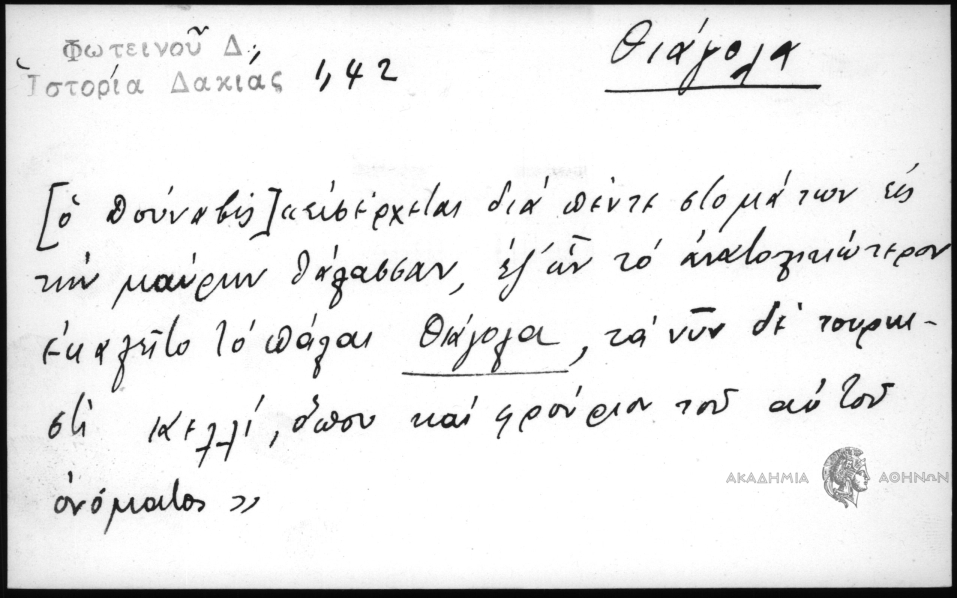 Φωτεινοῦ Δ.,
Ἱστορία Δακίας 1,42
Θιάγολα
[ὁ Δούναβις] εἰσέρχεται διά πέντε στομάτων εἰς
τήν μαύρην θάλασσαν, ἐξ ὧν τό ἀνατολικώτερον
ἐκαλεῖτο τό πάλαι Θιάγολα, τά νῦν δέ τουρκι-
στί κελλί, ὅπου καί φρούριον τοῦ αὐτοῦ
ὀνόματος »
ΑΚΑΔΗΜΙΑ ΑΘΗΝΩΝ